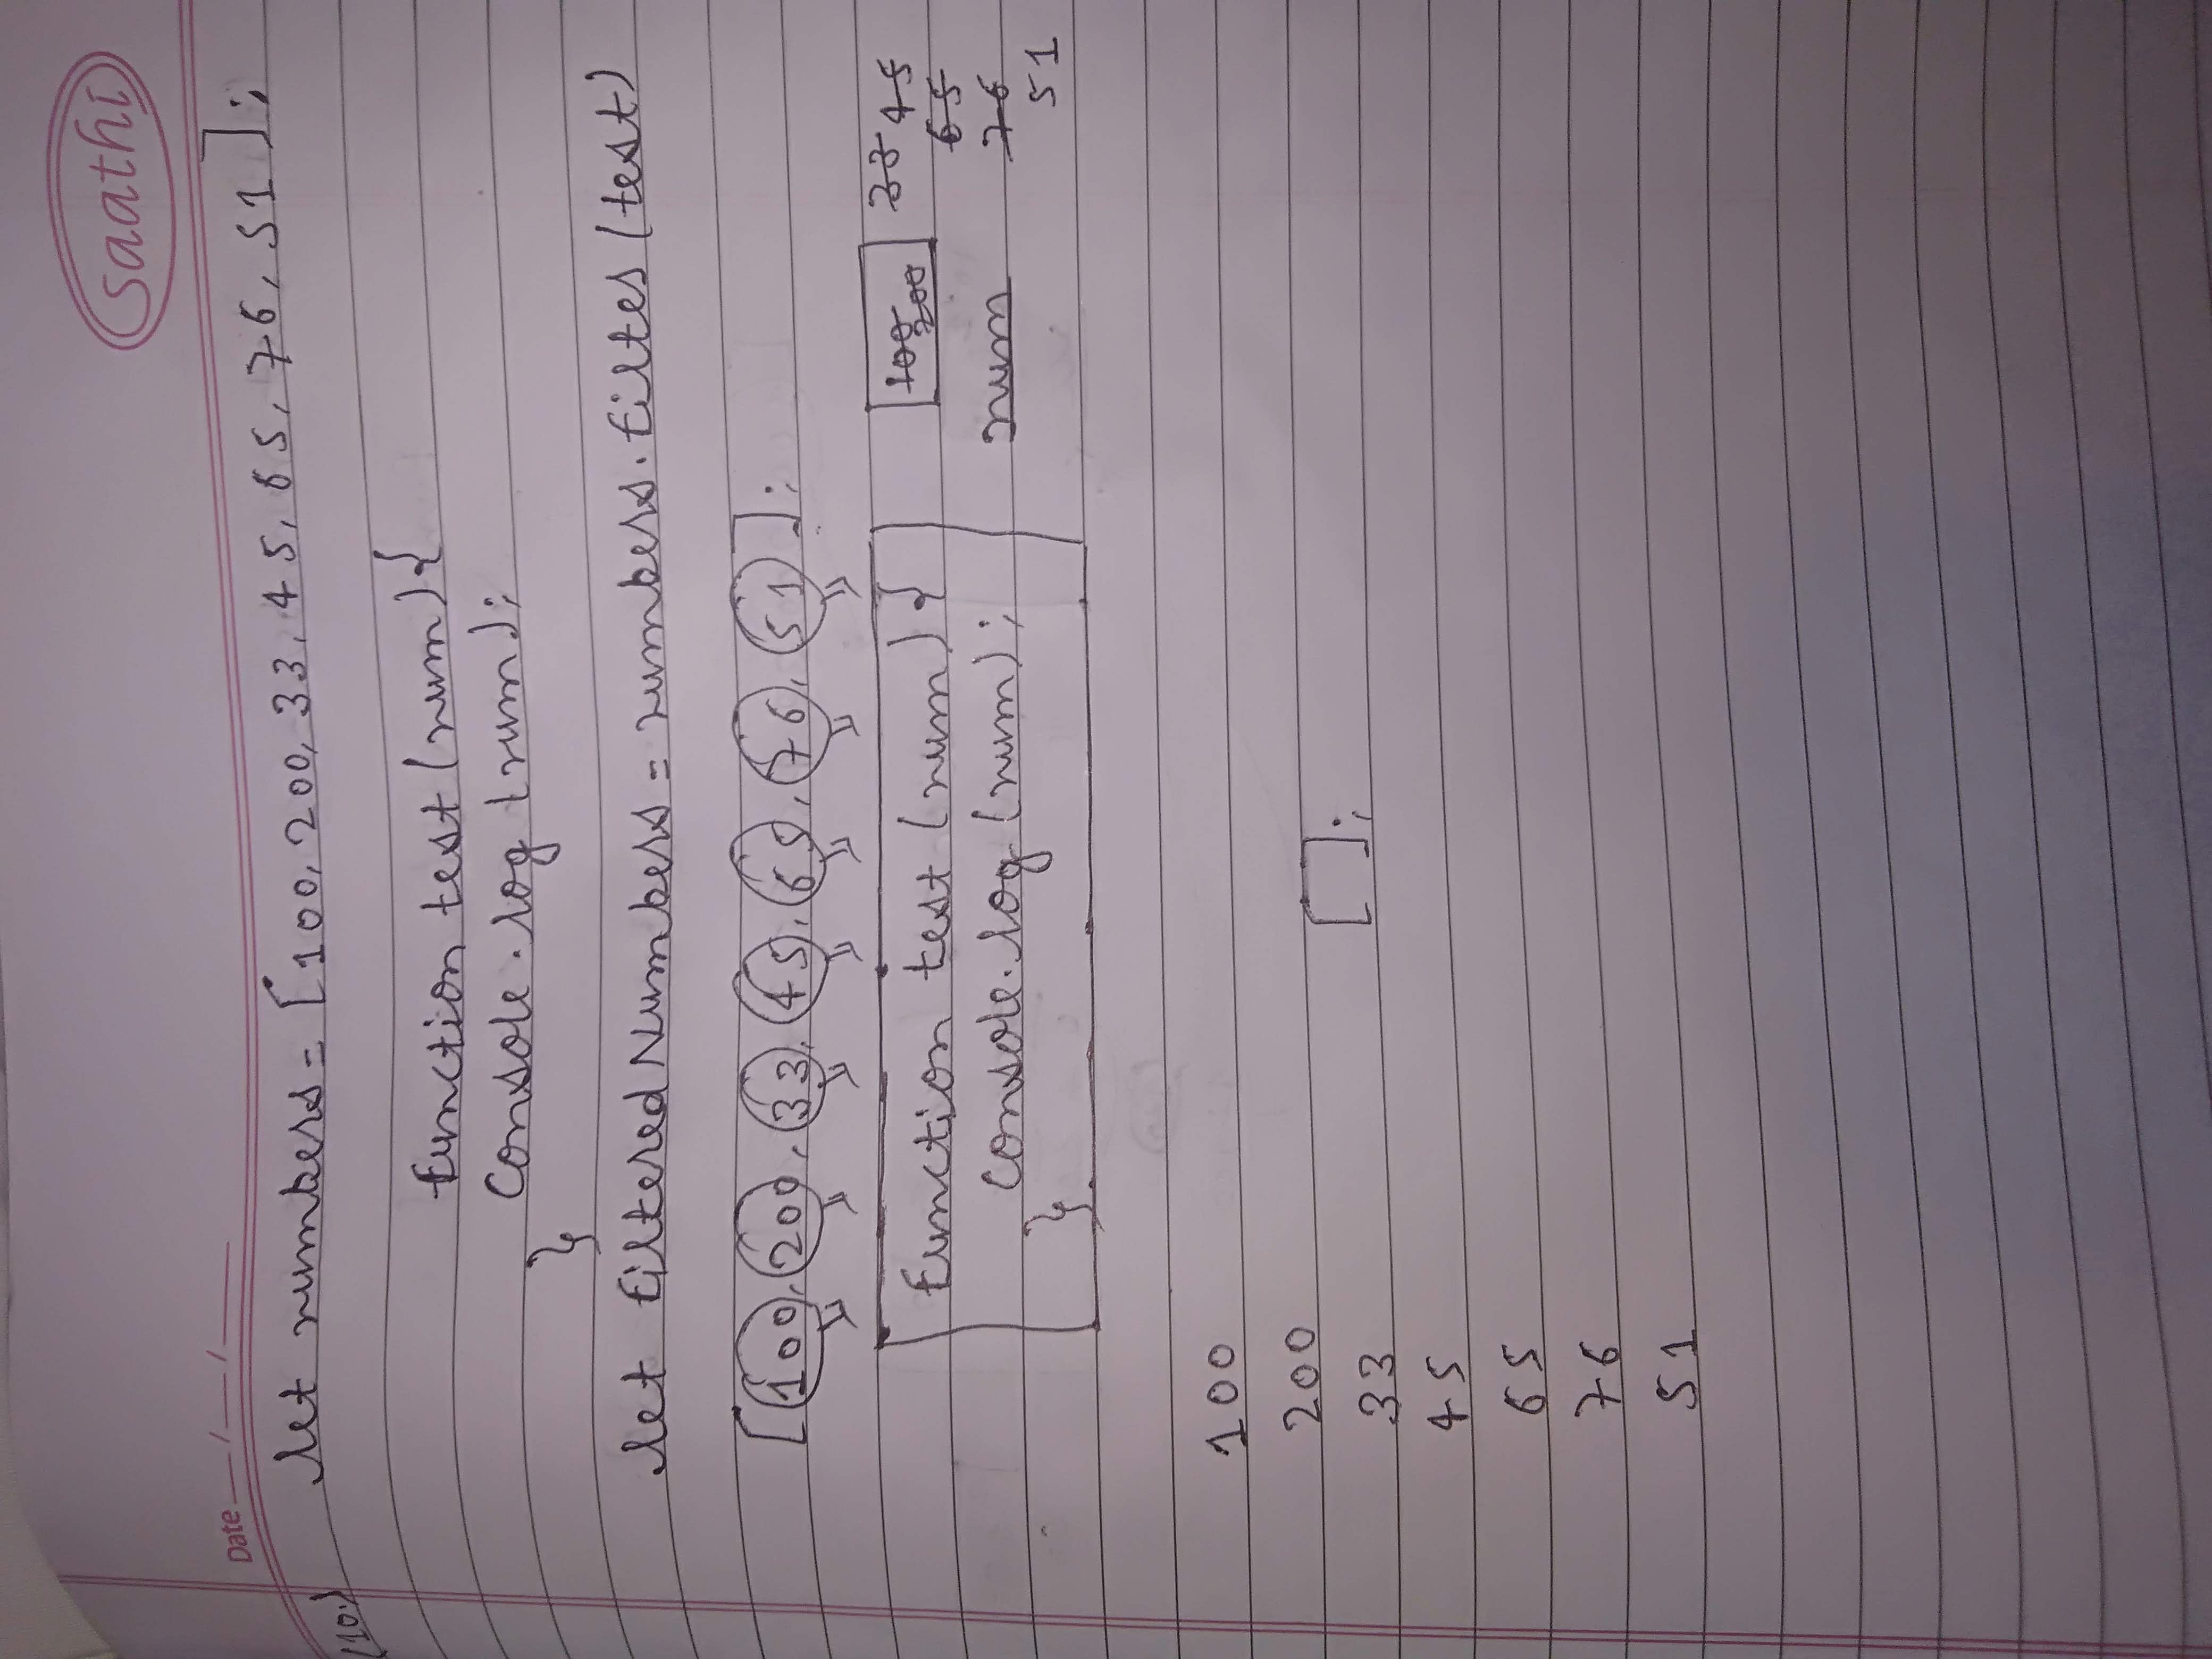 saathi
Date __/__/____
(10.) let numbers = [100, 200, 33, 45, 65, 76, 51];
function test (num) {
console.log (num);
}
let filteredNumbers = numbers.filter (test)
[100, 200, 33, 45, 65, 76, 51];
function test (num) {
console.log (num);
}
100 200 33 45
65
num 76
51
100
200
33
45
65
76
51
[ ];